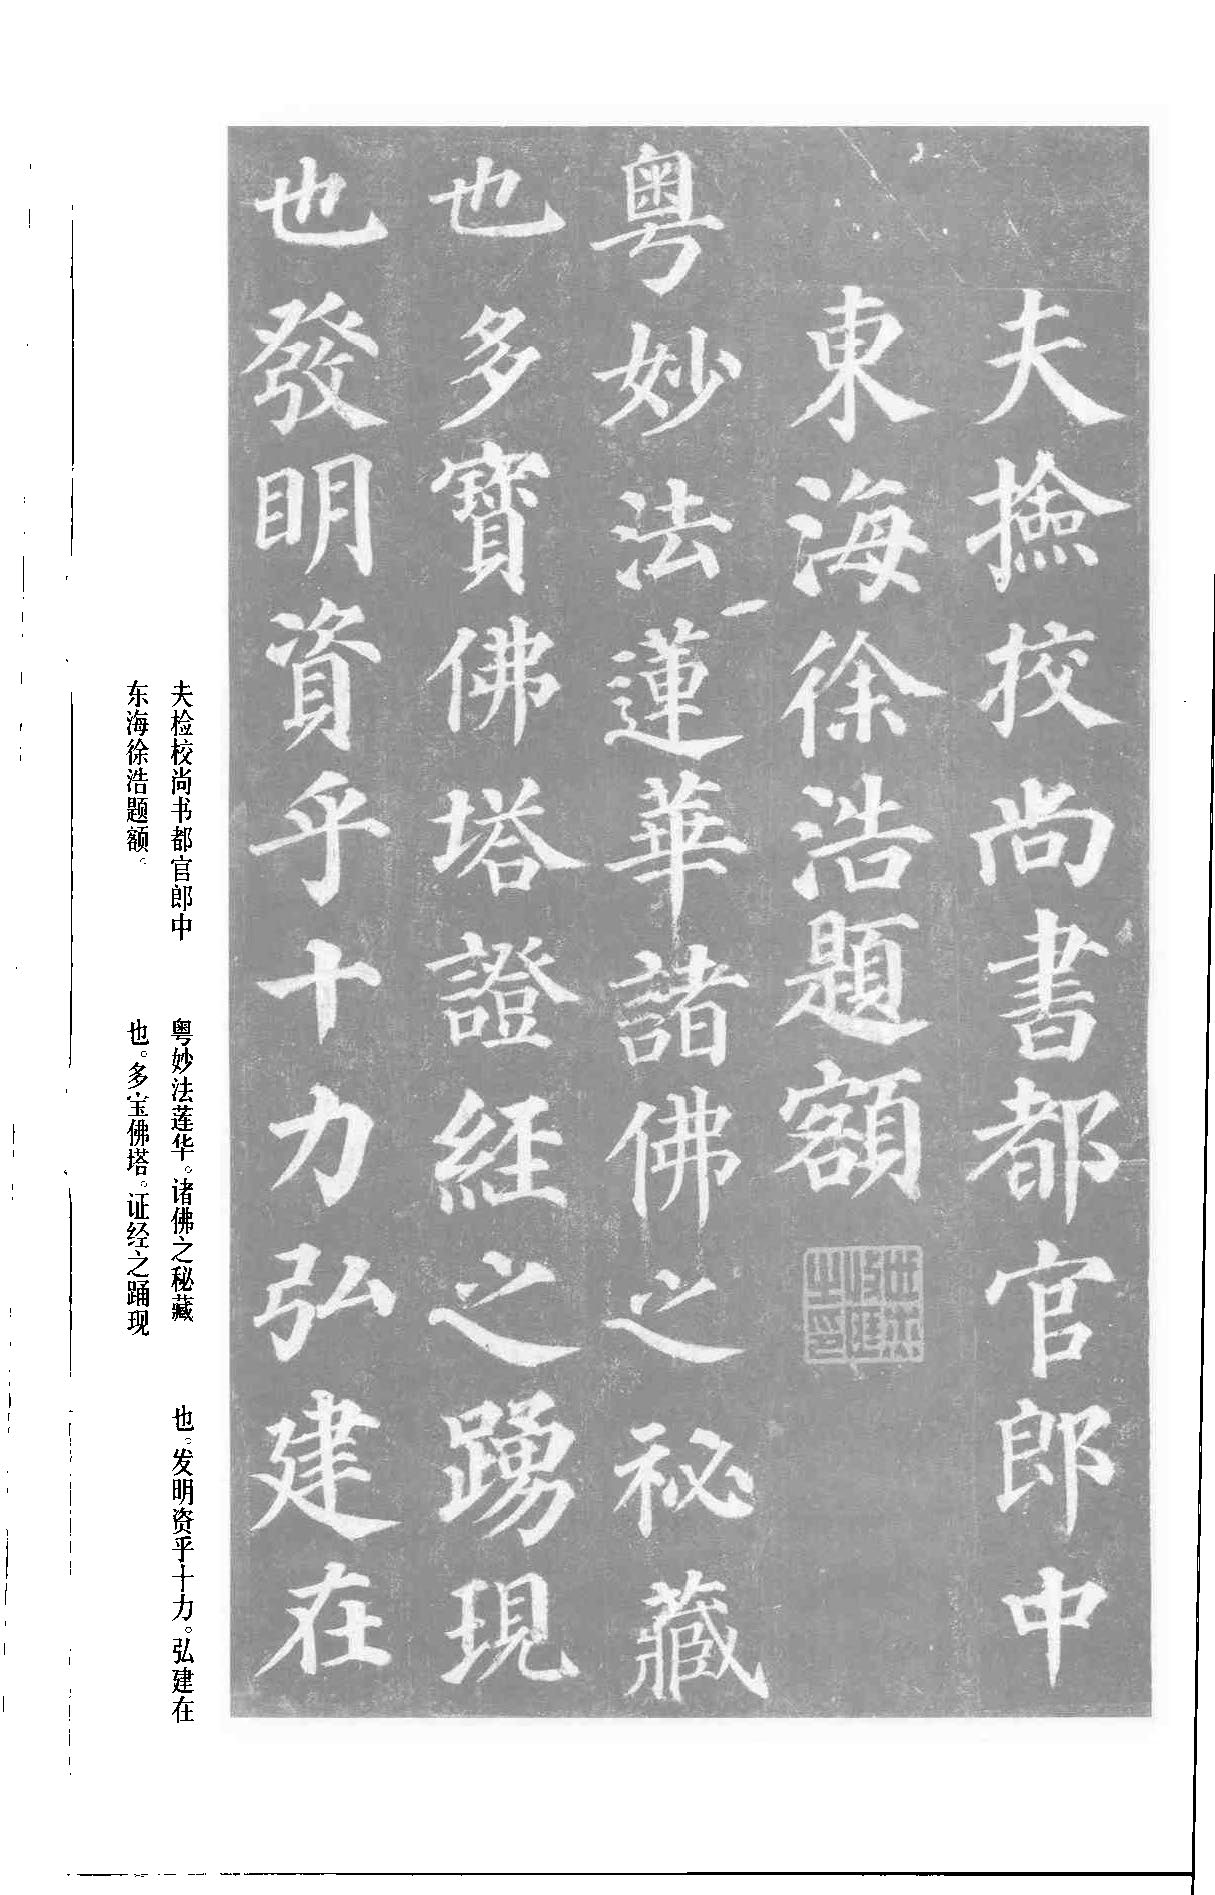 夫撿挍尚書都官郎中
東海徐浩題額
粵妙法蓮華諸佛之祕藏
也多寳佛塔證經之踴現
也發明資乎十力弘建在
夫检校尚书都官郎中
东海徐浩题额。
粤妙法莲华。诸佛之秘藏
也。多宝佛塔。证经之踊现
也。发明资乎十力。弘建在